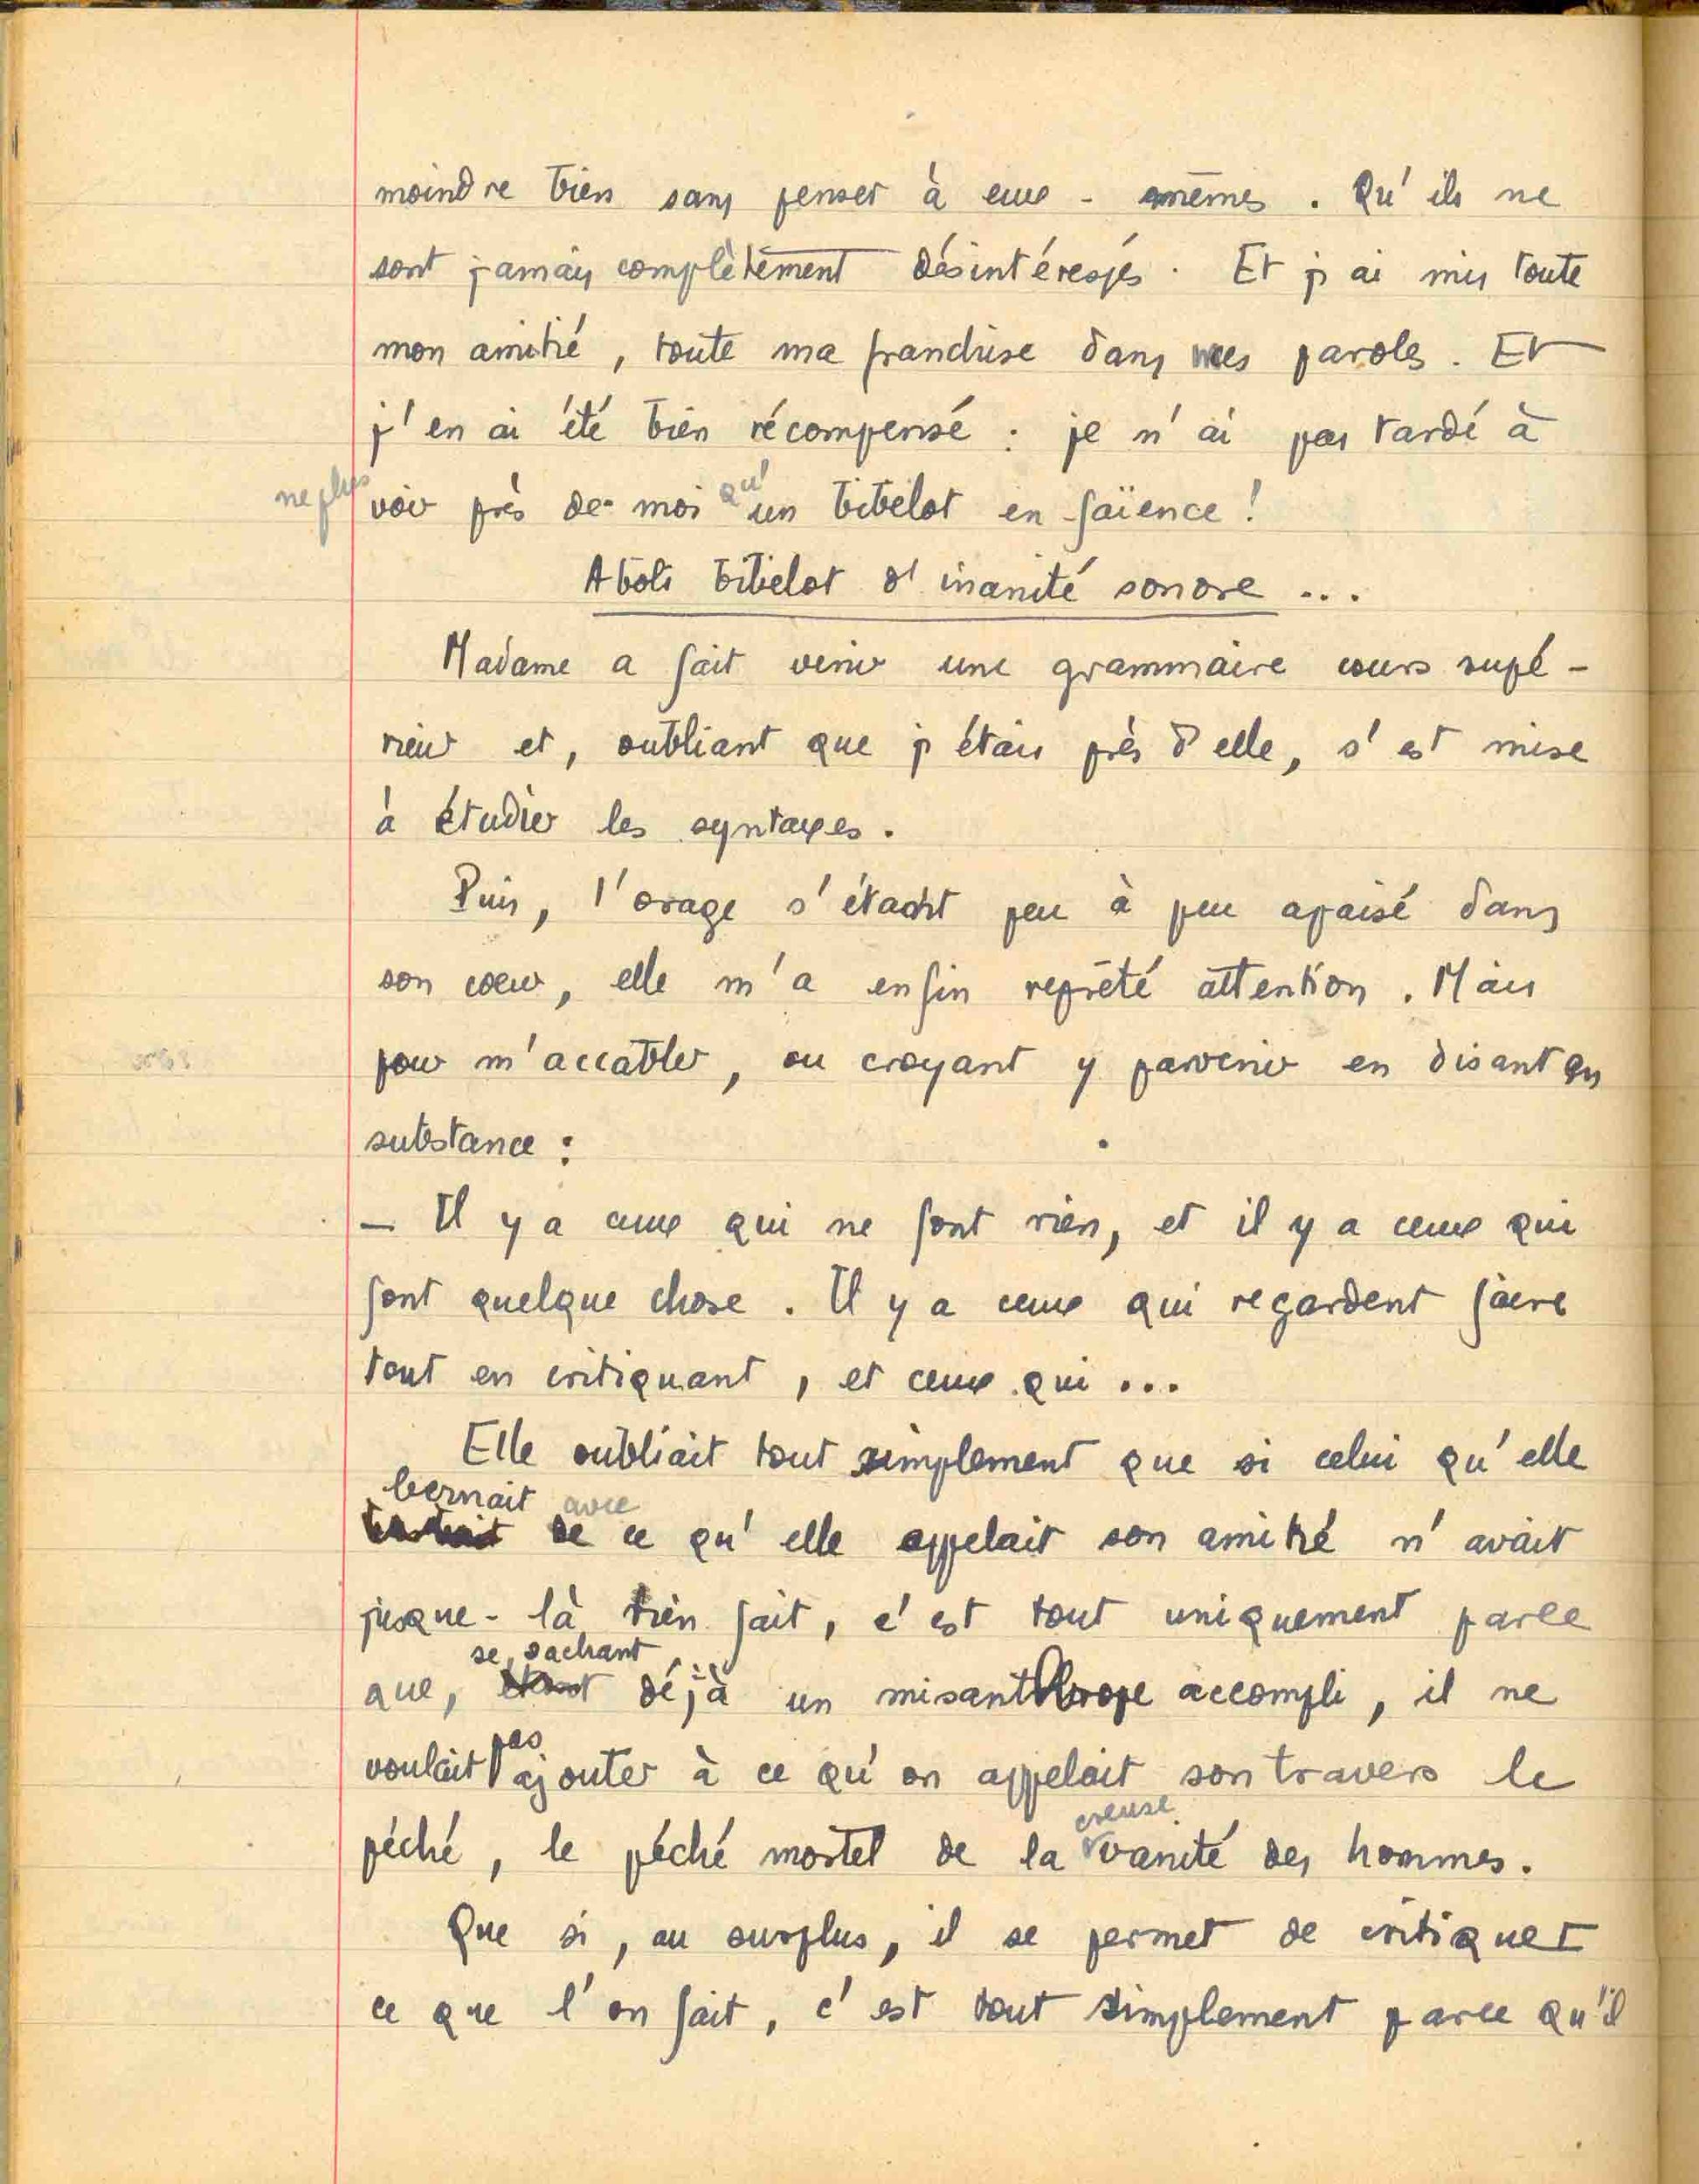 moindre bien sans penser à eux-mêmes. Qu'ils ne
sont jamais complètement désintéressés. Et j'ai mis toute
mon amitié, toute ma franchise dans mes paroles. Et
j'en ai été bien récompensé : je n'ai pas tardé à
ne plus voir près de moi qu'un bibelot en faïence !
Aboli bibelot d'inanité sonore ...
Madame a fait venir une grammaire cours supé-
rieur et, oubliant que j'étais près d'elle, s'est mise
à étudier les syntaxes.
Puis, l'orage s'étant peu à peu apaisé dans
son coeur, elle m'a enfin reprêté attention. Mais
pour m'accabler, ou croyant y parvenir en disant en
substance :
— Il y a ceux qui ne font rien, et il y a ceux qui
font quelque chose. Il y a ceux qui regardent faire
tout en critiquant, et ceux qui ...
Elle oubliait tout simplement que si celui qu'elle
bernait avec
de ce qu'elle appelait son amitié n'avait
jusque-là rien fait, c'est tout uniquement parce
se sachant
que, étant déjà un misanthrope accompli, il ne
voulait pas ajouter à ce qu'on appelait son travers le
creuse
péché, le péché mortel de la vanité des hommes.
Que si, au surplus, il se permet de critiquer
ce que l'on fait, c'est tout simplement parce qu'il